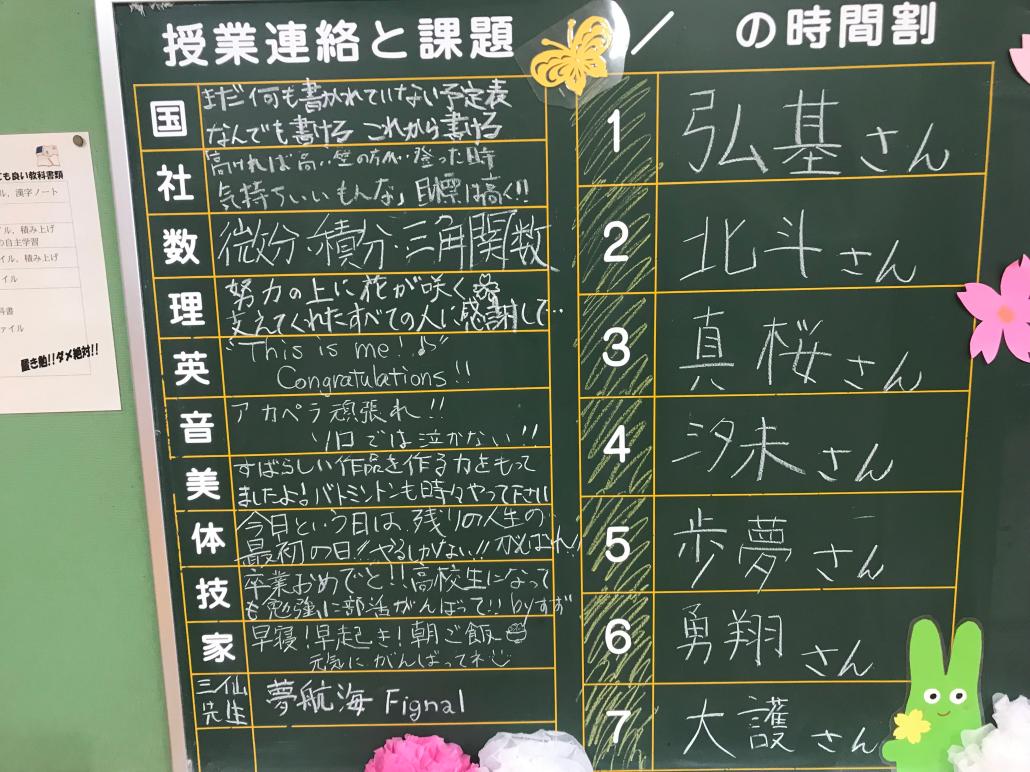 授業連絡と課題
国
まだ何も書かれていない予定表
なんでも書ける これから書ける
社
高ければ高い壁の方が‥登った時
気持ちいいもんな」目標は高く!!
数
微分・積分・三角関数
理
努力の上に花が咲く
支えてくれたすべての人に感謝して…
英
"This is me!♪"
Congratulations!!
音
アカペラ頑張れ!!
ソロでは泣かない!!
美
すばらしい作品を作る力をもって
ましたよ!バトミントンも時々やって下さい
体
今日という日は、残りの人生の
最初の日!!やるしかない!!
技
卒業おめでと!!高校生になって
も勉強に部活がんばって!! byすず
家
早寝!早起き!朝ご飯
元気にがんばってネ
三仙先生
夢航海 Fignal
/ の時間割
1 弘基さん
2 北斗さん
3 真桜さん
4 汐未さん
5 歩夢さん
6 勇翔さん
7 大護さん
ても良い教科書類
ル、漢字ノート
イル、積み上げ
の自主学習
イル、積み上げ
イル
科書
ァイル
置き勉!!ダメ絶対!!